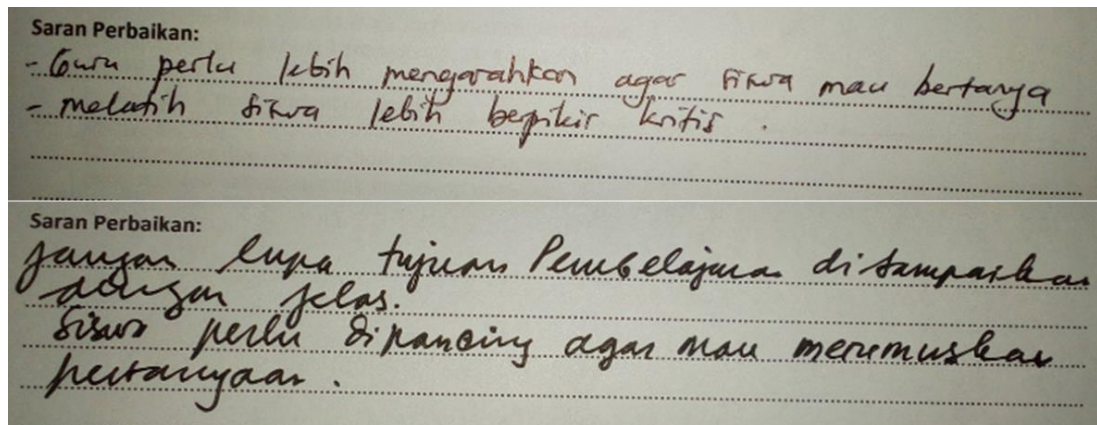 Saran Perbaikan:
- Guru perlu lebih mengarahkan agar siswa mau bertanya
- melatih siswa lebih berpikir kritis .
Saran Perbaikan:
Jangan lupa tujuan Pembelajaran disampaikan
dengan jelas.
Siswa perlu dipancing agar mau merumuskan
pertanyaan .